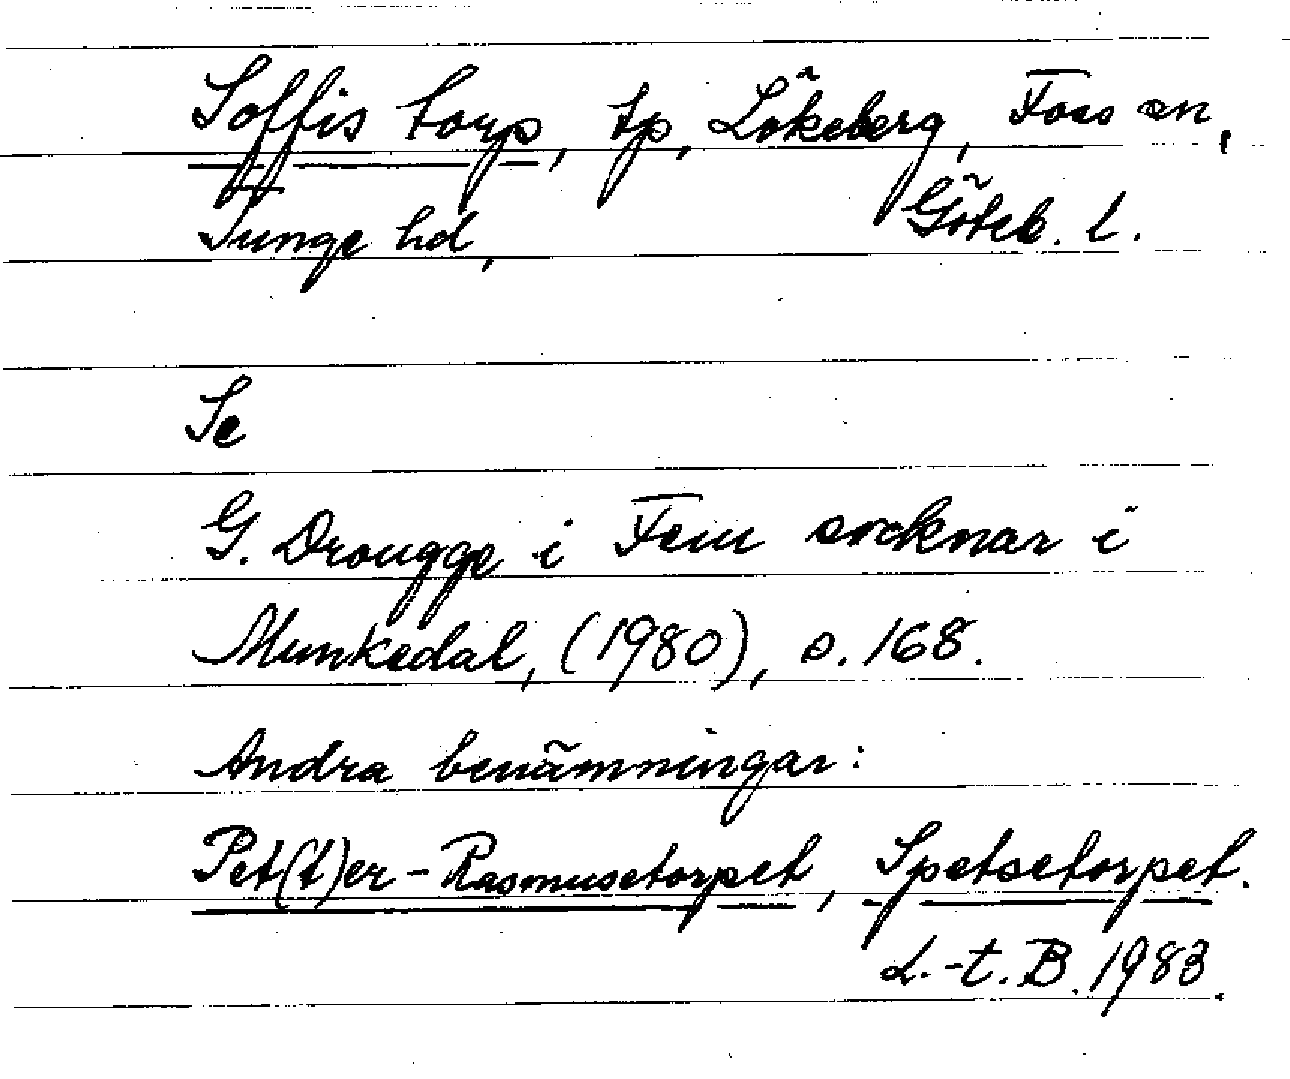 Soffis torp, tp, Lökeberg, Foss sn,
Tunge hd, Göteb. l.
Se
G. Drougge i Fem socknar i
Munkedal, (1980), s. 168.
Andra benämningar:
Pet(t)er-Rasmusetorpet, Spetsetorpet.
L.-t. B. 1983.